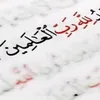 لِلَّهِ رَبِّ الْعَالَمِينَ